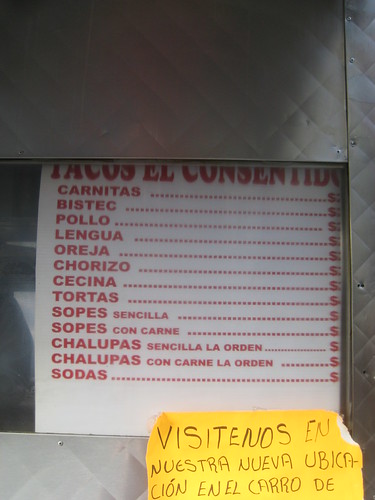 TACOS EL CONSENTIDO
CARNITAS ........................ $
BISTEC ........................ $
POLLO ........................ $
LENGUA ........................ $
OREJA ........................ $
CHORIZO ........................ $
CECINA ........................ $
TORTAS ........................ $
SOPES SENCILLA ........................ $
SOPES CON CARNE ........................ $
CHALUPAS SENCILLA LA ORDEN ........................ $
CHALUPAS CON CARNE LA ORDEN ........................ $
SODAS ........................ $
VISITENOS EN
NUESTRA NUEVA UBICA-
CIÓN EN EL CARRO DE